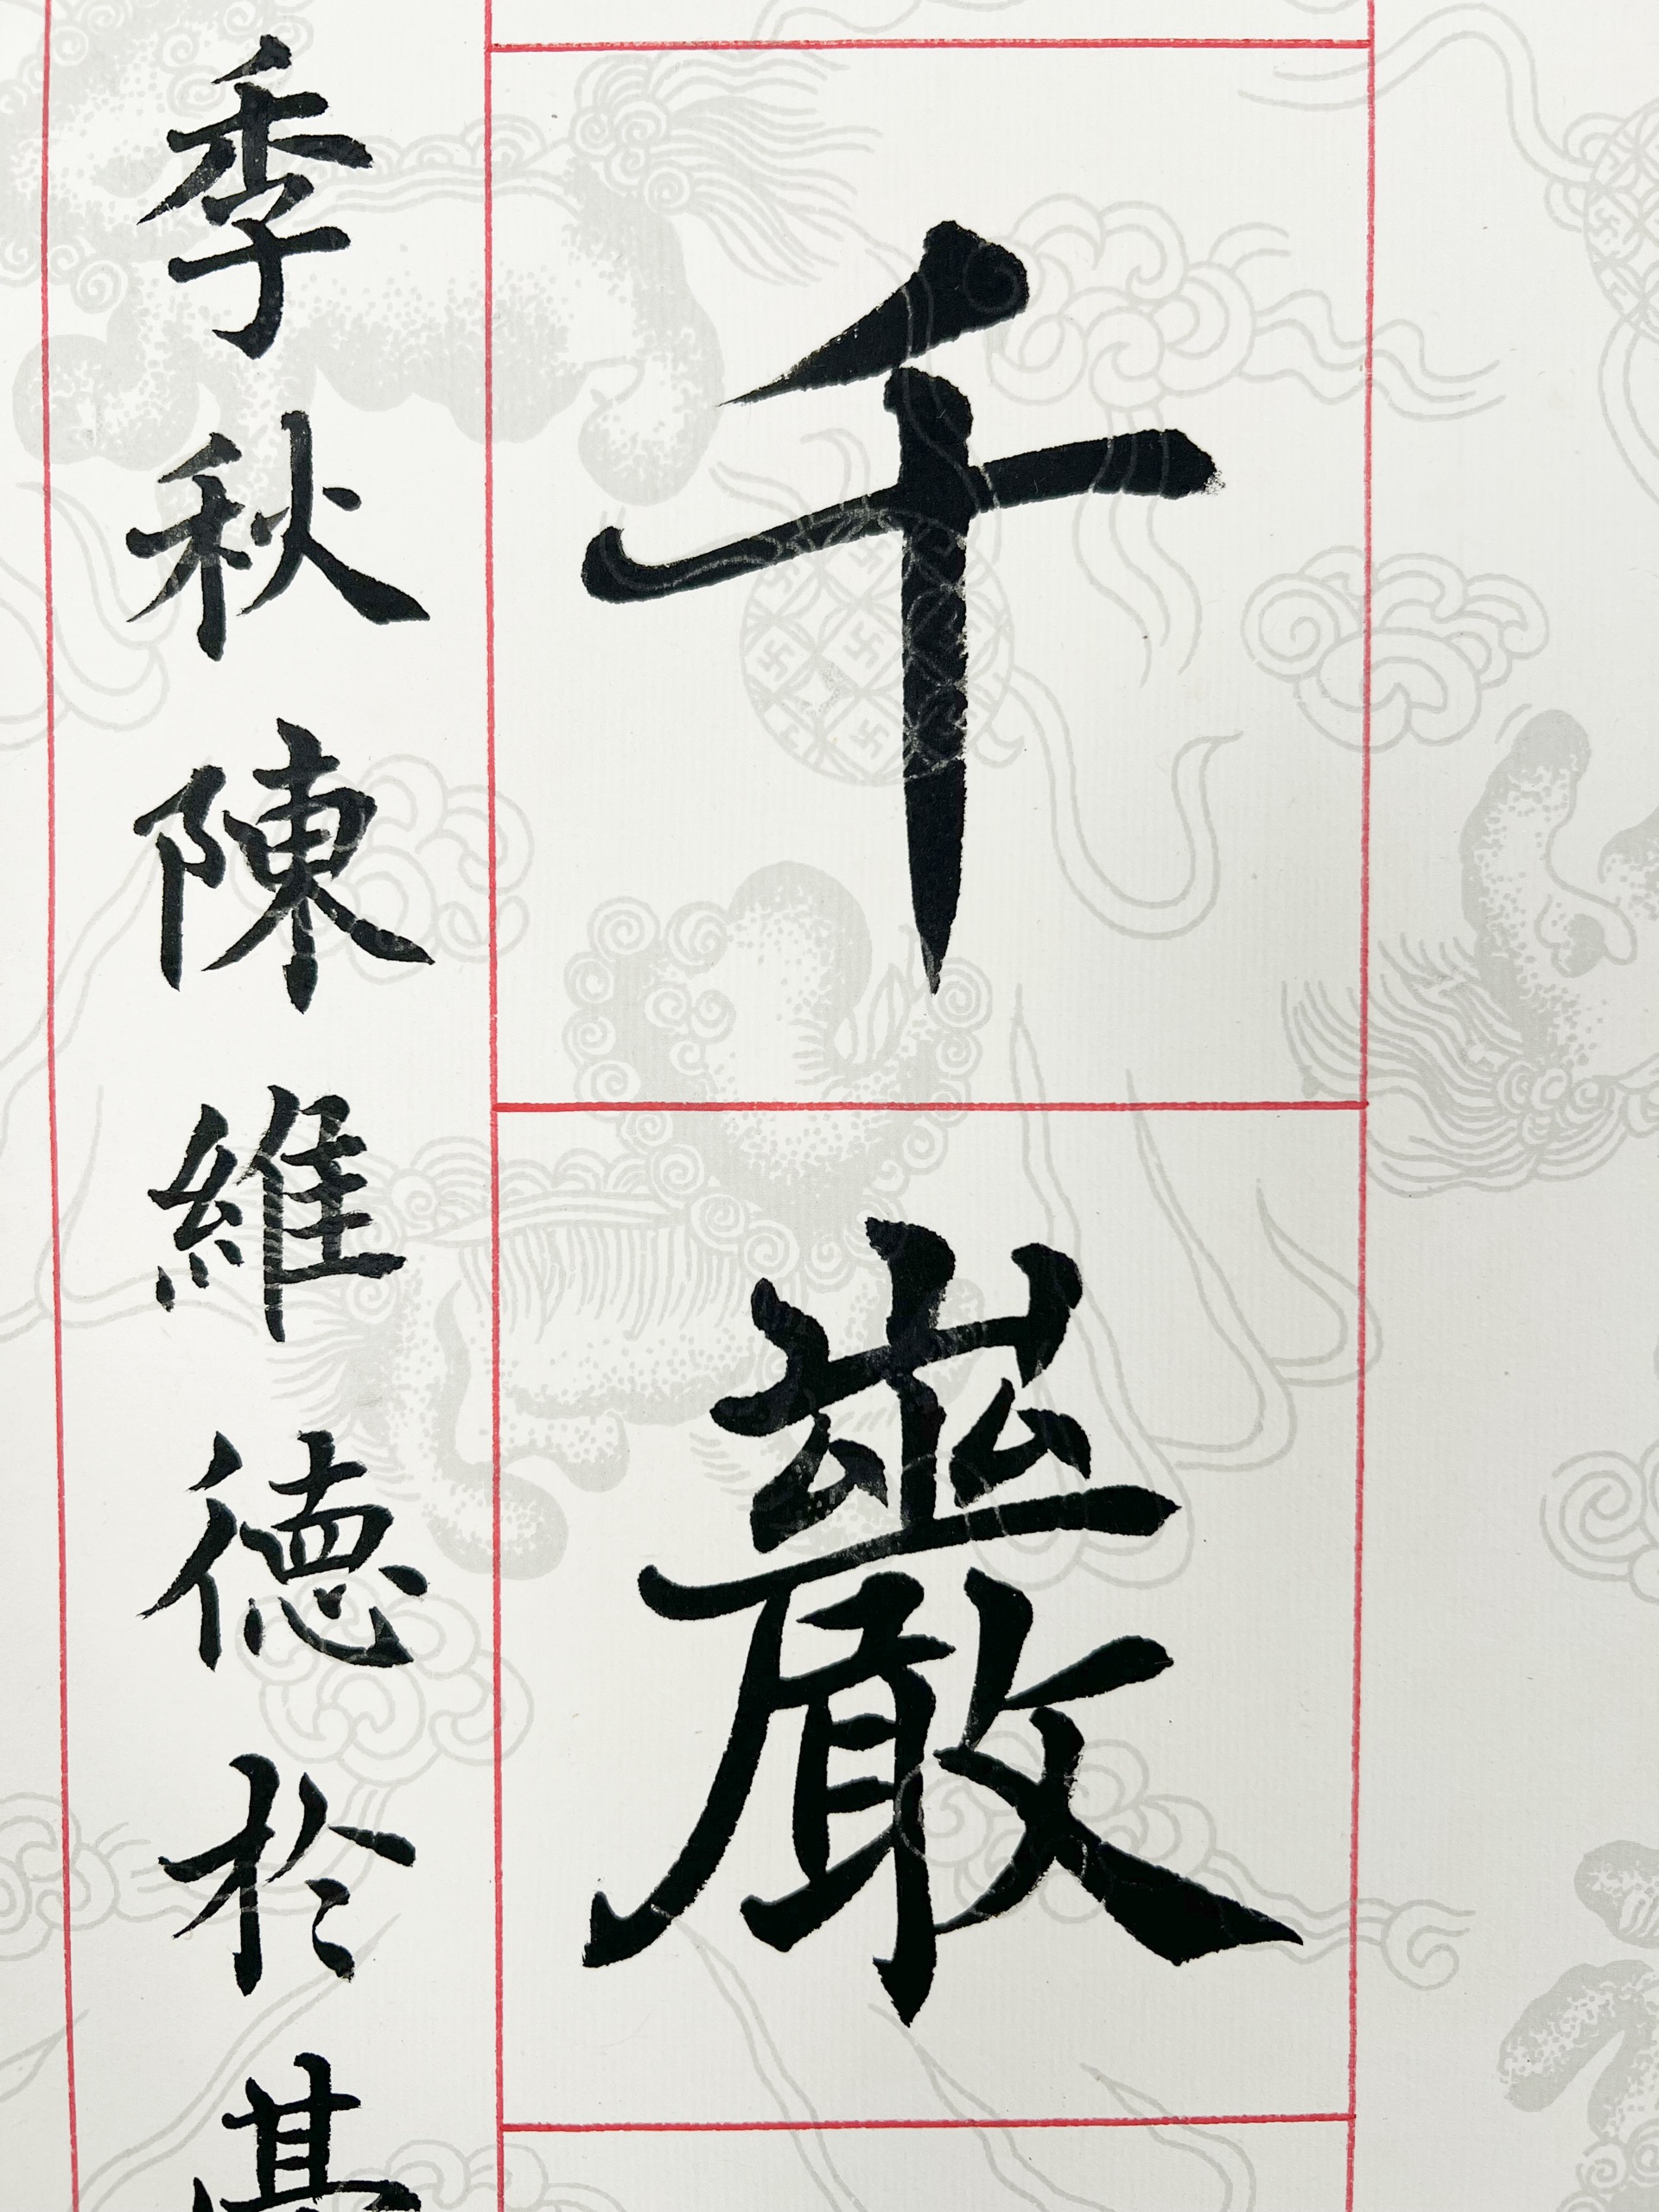 千巖
季秋陳維德於